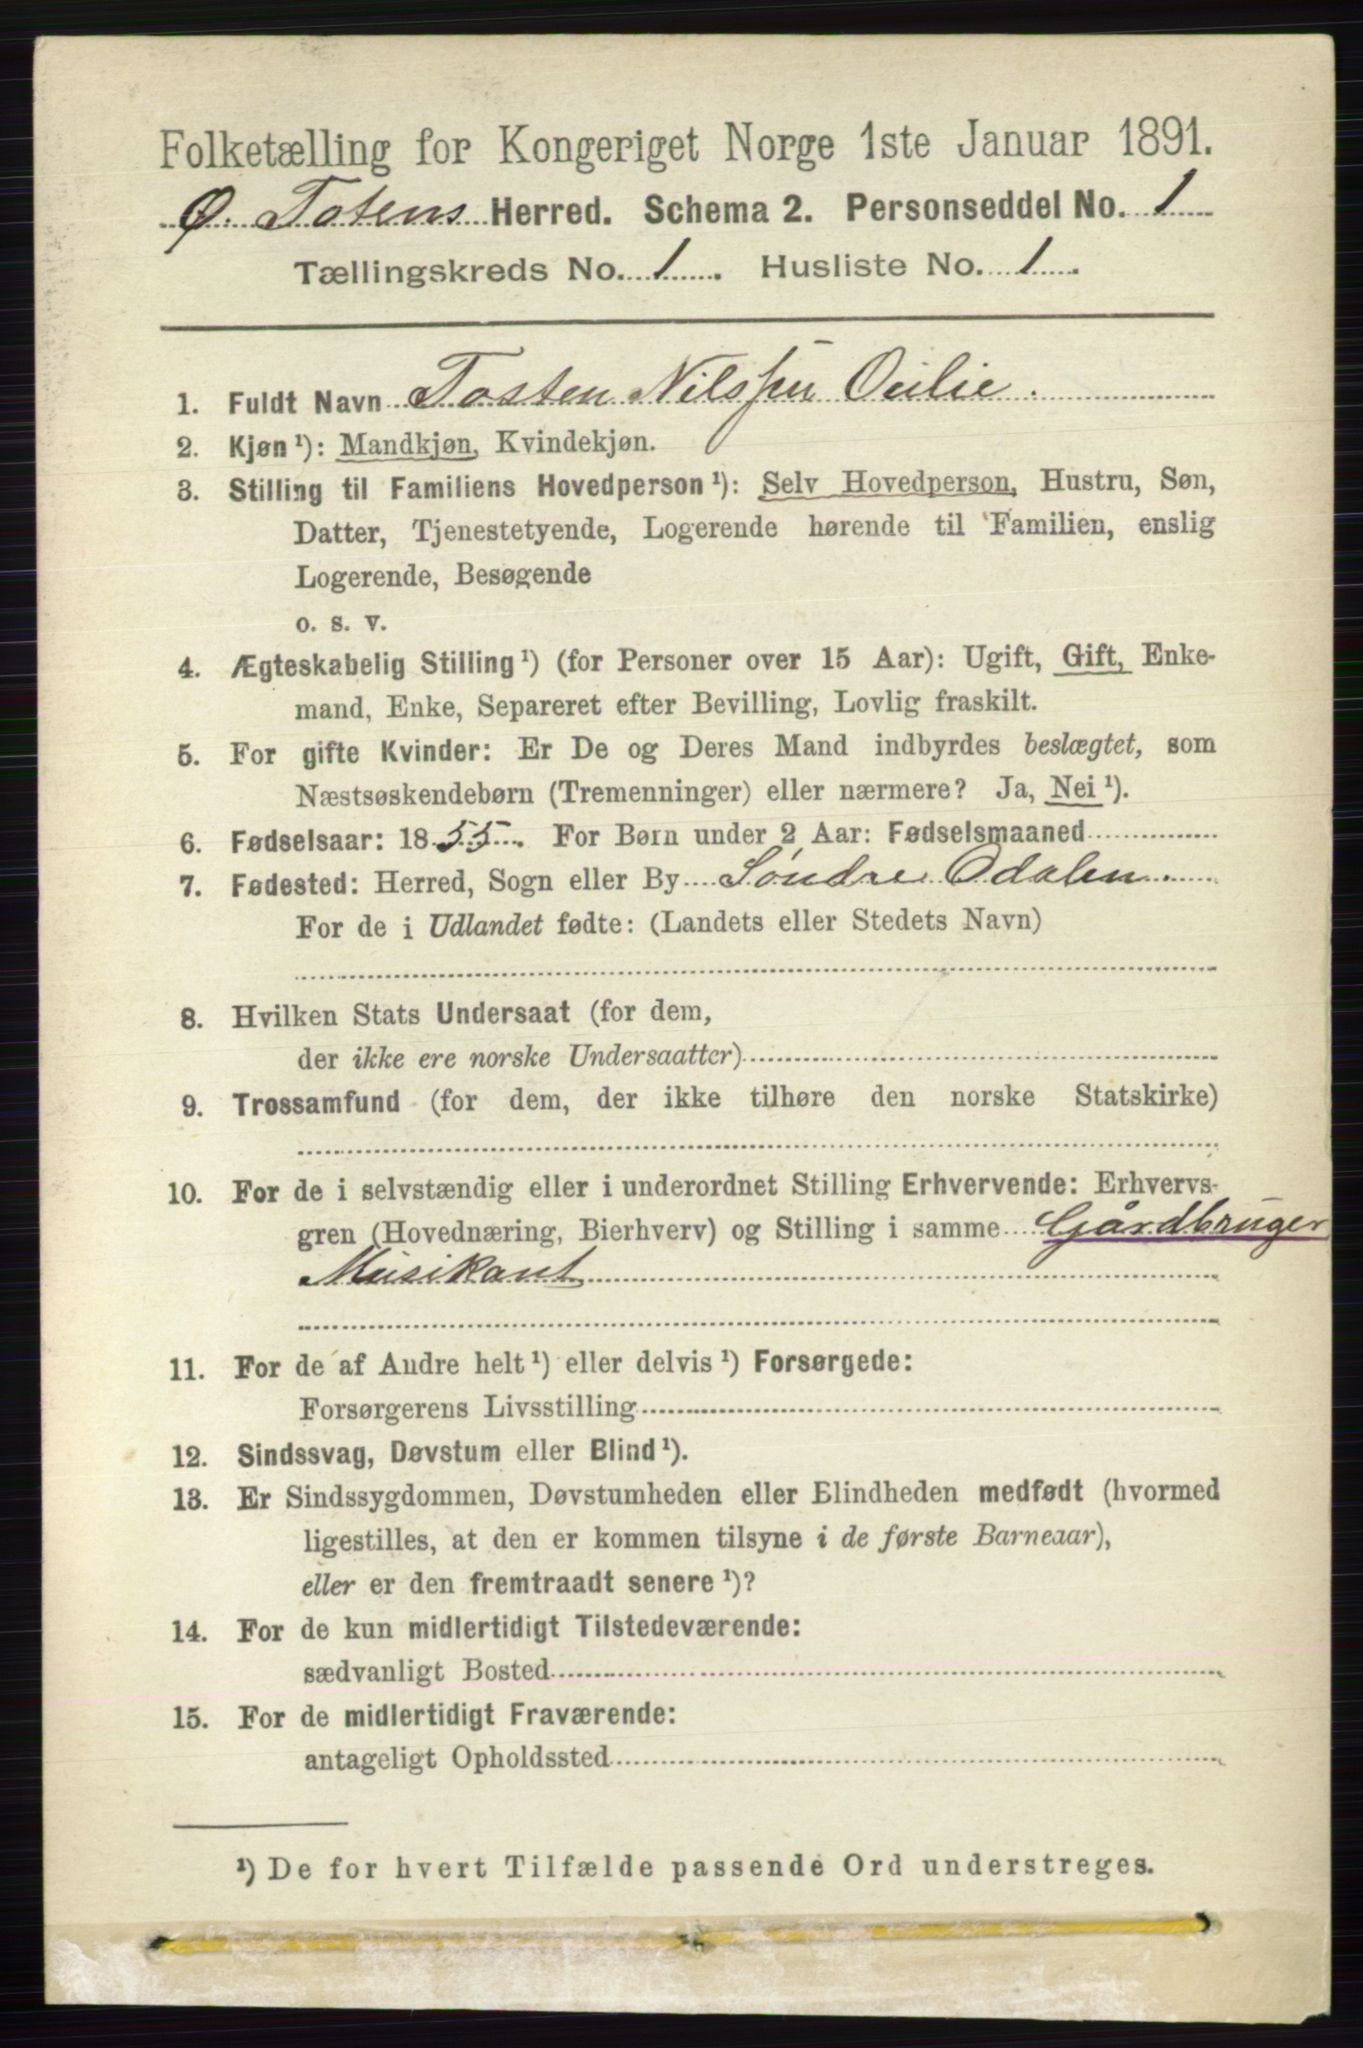 Folketælling for Kongeriget Norge 1ste Januar 1891.
Ø. Totens Herred. Schema 2. Personseddel No. 1
Tællingskreds No. 1. Husliste No. 1.
1. Fuldt Navn Tosten Nilssen Oulie.
2. Kjøn ¹): Mandkjøn, Kvindekjøn.
3. Stilling til Familiens Hovedperson ¹): Selv Hovedperson, Hustru, Søn,
Datter, Tjenestetyende, Logerende hørende til Familien, enslig
Logerende, Besøgende
o. s. v.
4. Ægteskabelig Stilling ¹) (for Personer over 15 Aar): Ugift, Gift, Enke-
mand, Enke, Separeret efter Bevilling, Lovlig fraskilt.
5. For gifte Kvinder: Er De og Deres Mand indbyrdes beslægtet, som
Næstsøskendebørn (Tremenninger) eller nærmere? Ja, Nei ¹).
6. Fødselsaar: 1855. For Børn under 2 Aar: Fødselsmaaned
7. Fødested: Herred, Sogn eller By Søndre Odalen.
For de i Udlandet fødte: (Landets eller Stedets Navn)
8. Hvilken Stats Undersaat (for dem,
der ikke ere norske Undersaatter)
9. Trossamfund (for dem, der ikke tilhøre den norske Statskirke)
10. For de i selvstændig eller i underordnet Stilling Erhvervende: Erhvervs-
gren (Hovednæring, Bierhverv) og Stilling i samme Gårdbruger
Musikant
11. For de af Andre helt ¹) eller delvis ¹) Forsørgede:
Forsørgerens Livsstilling
12. Sindssvag, Døvstum eller Blind ¹).
13. Er Sindssygdommen, Døvstumheden eller Blindheden medfødt (hvormed
ligestilles, at den er kommen tilsyne i de første Barneaar),
eller er den fremtraadt senere ¹)?
14. For de kun midlertidigt Tilstedeværende:
sædvanligt Bosted
15. For de midlertidigt Fraværende:
antageligt Opholdssted
¹) De for hvert Tilfælde passende Ord understreges.